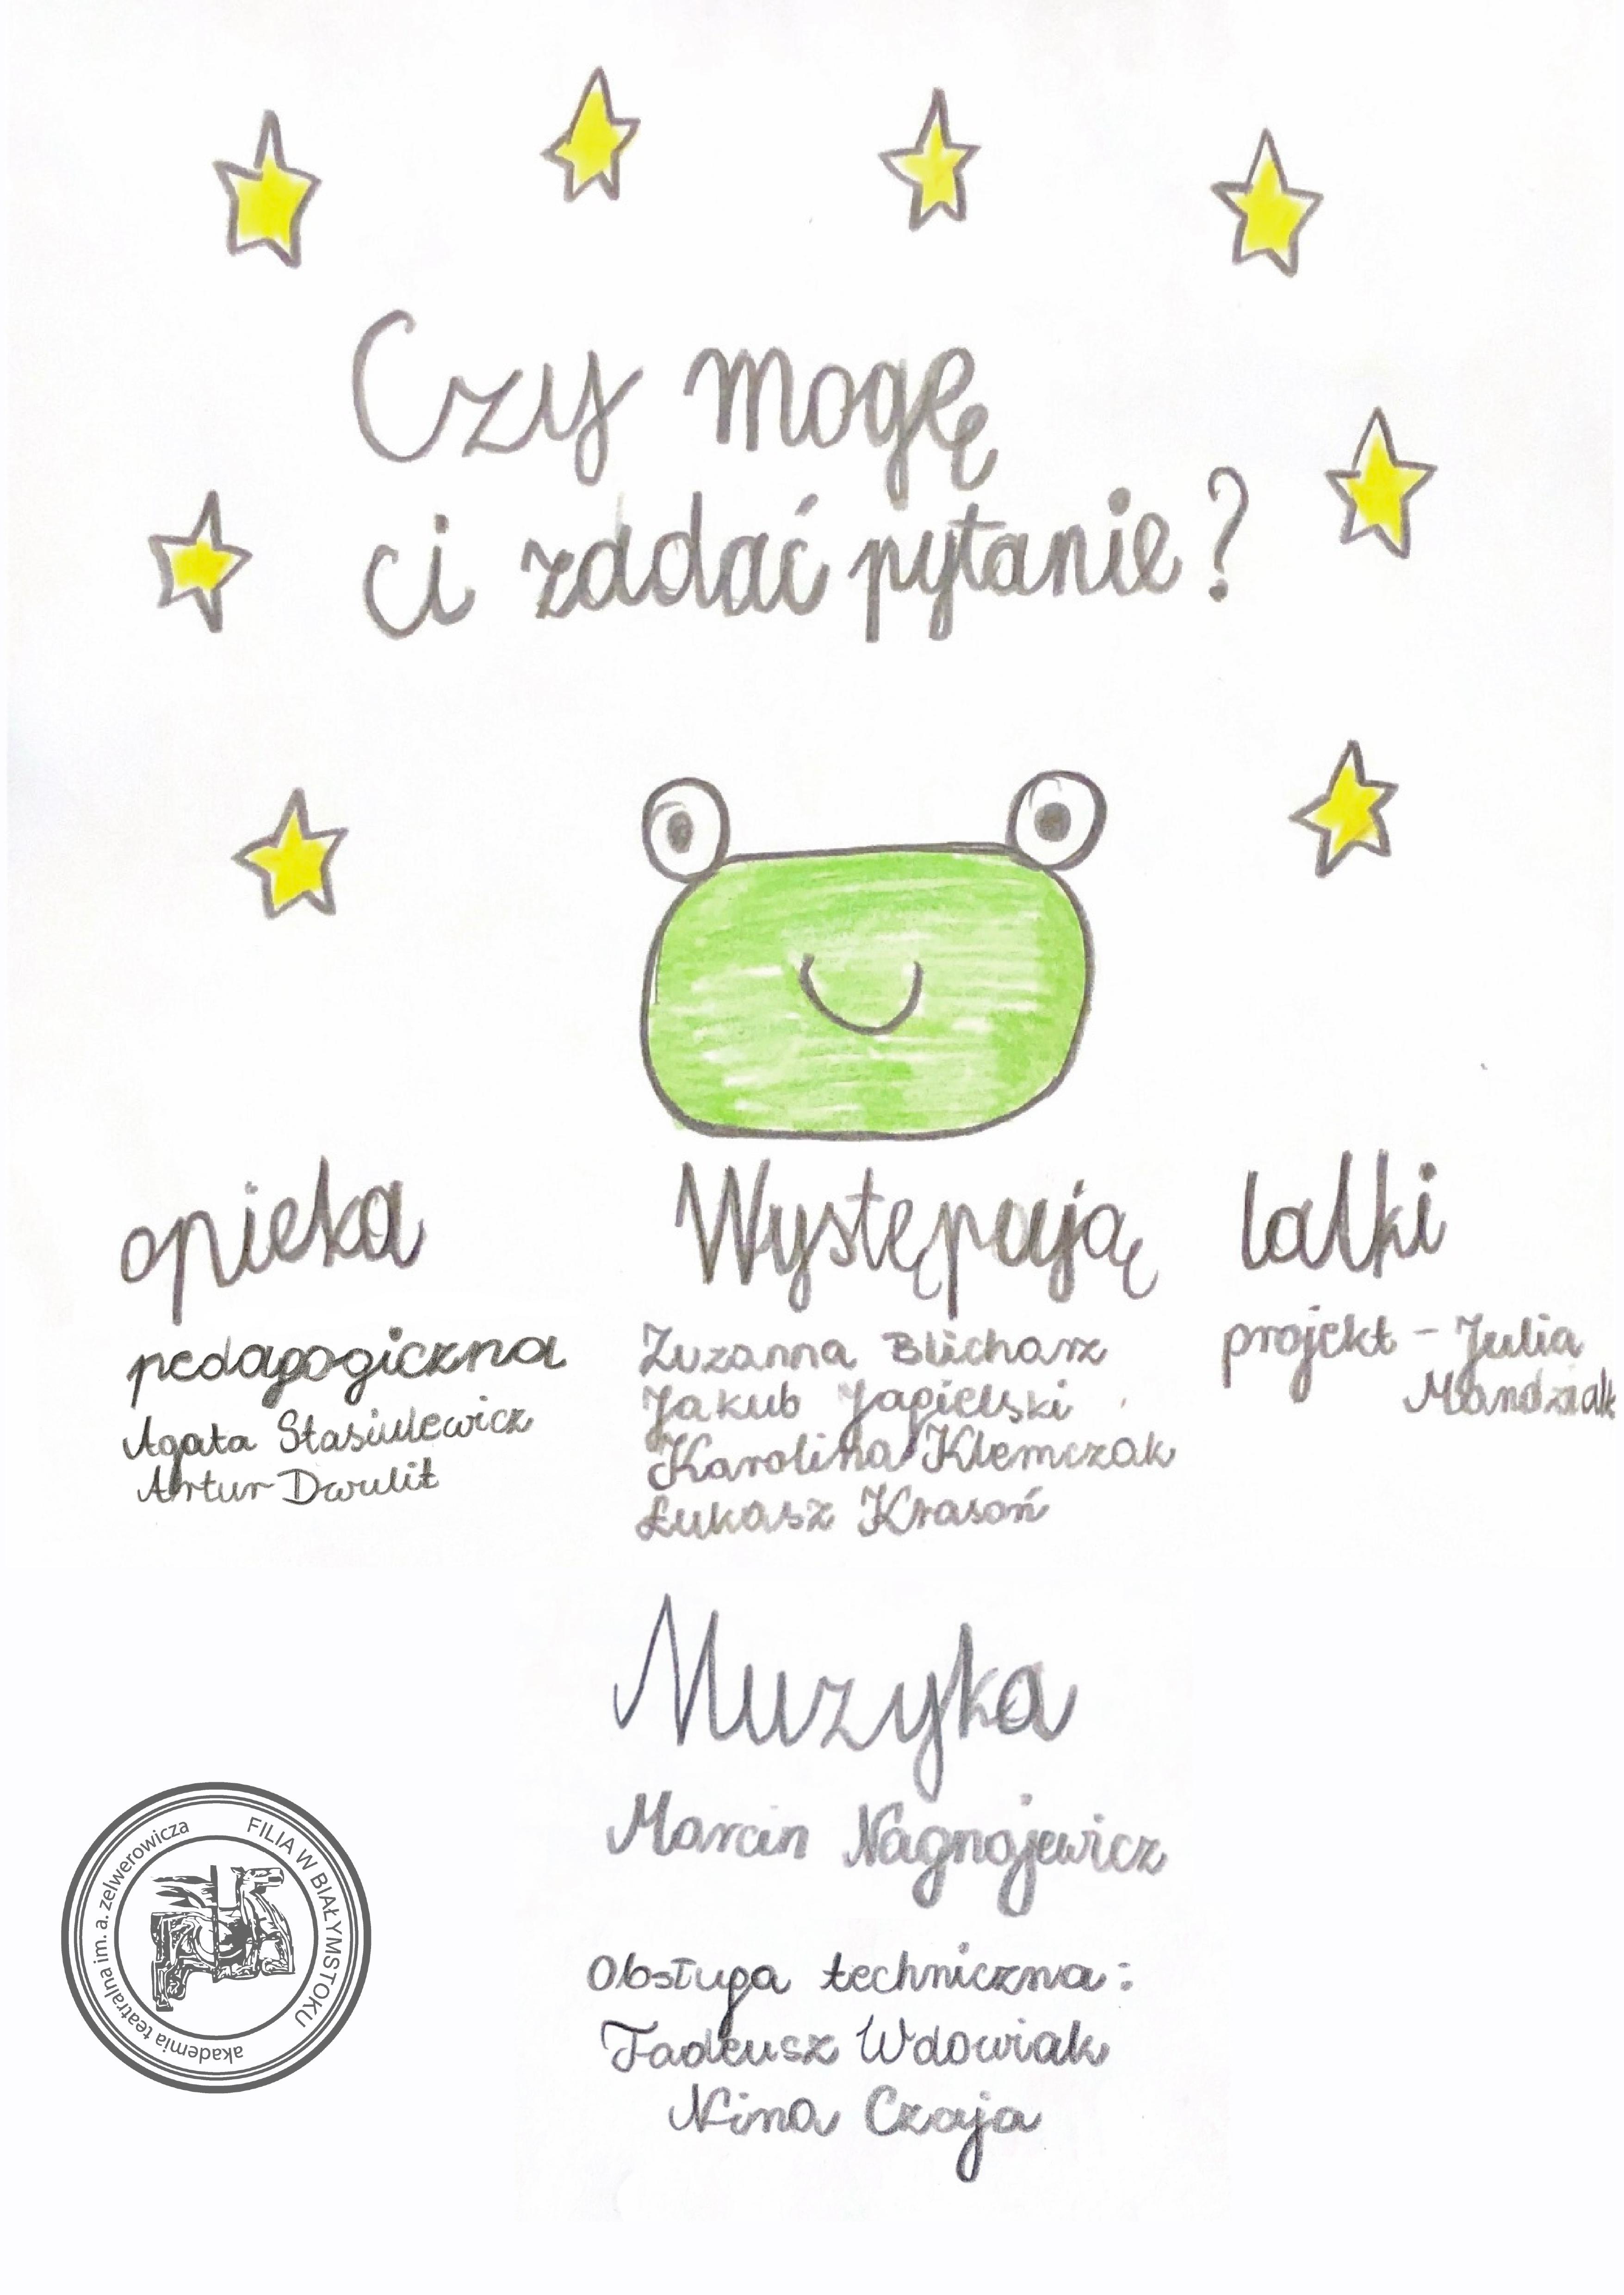 Czy mogę
ci zadać pytanie?
opieka
pedagogiczna
Agata Stasiulewicz
Artur Dwulit
Występują
Zuzanna Blicharz
Jakub Jagielski
Karolina Klemczak
Łukasz Krasoń
lalki
projekt - Julia
Mandziak
Muzyka
Marcin Nagnajewicz
Obsługa techniczna:
Tadeusz Wdowiak
Nina Czaja
akademia teatralna im. a. zelwerowicza
FILIA W BIAŁYMSTOKU